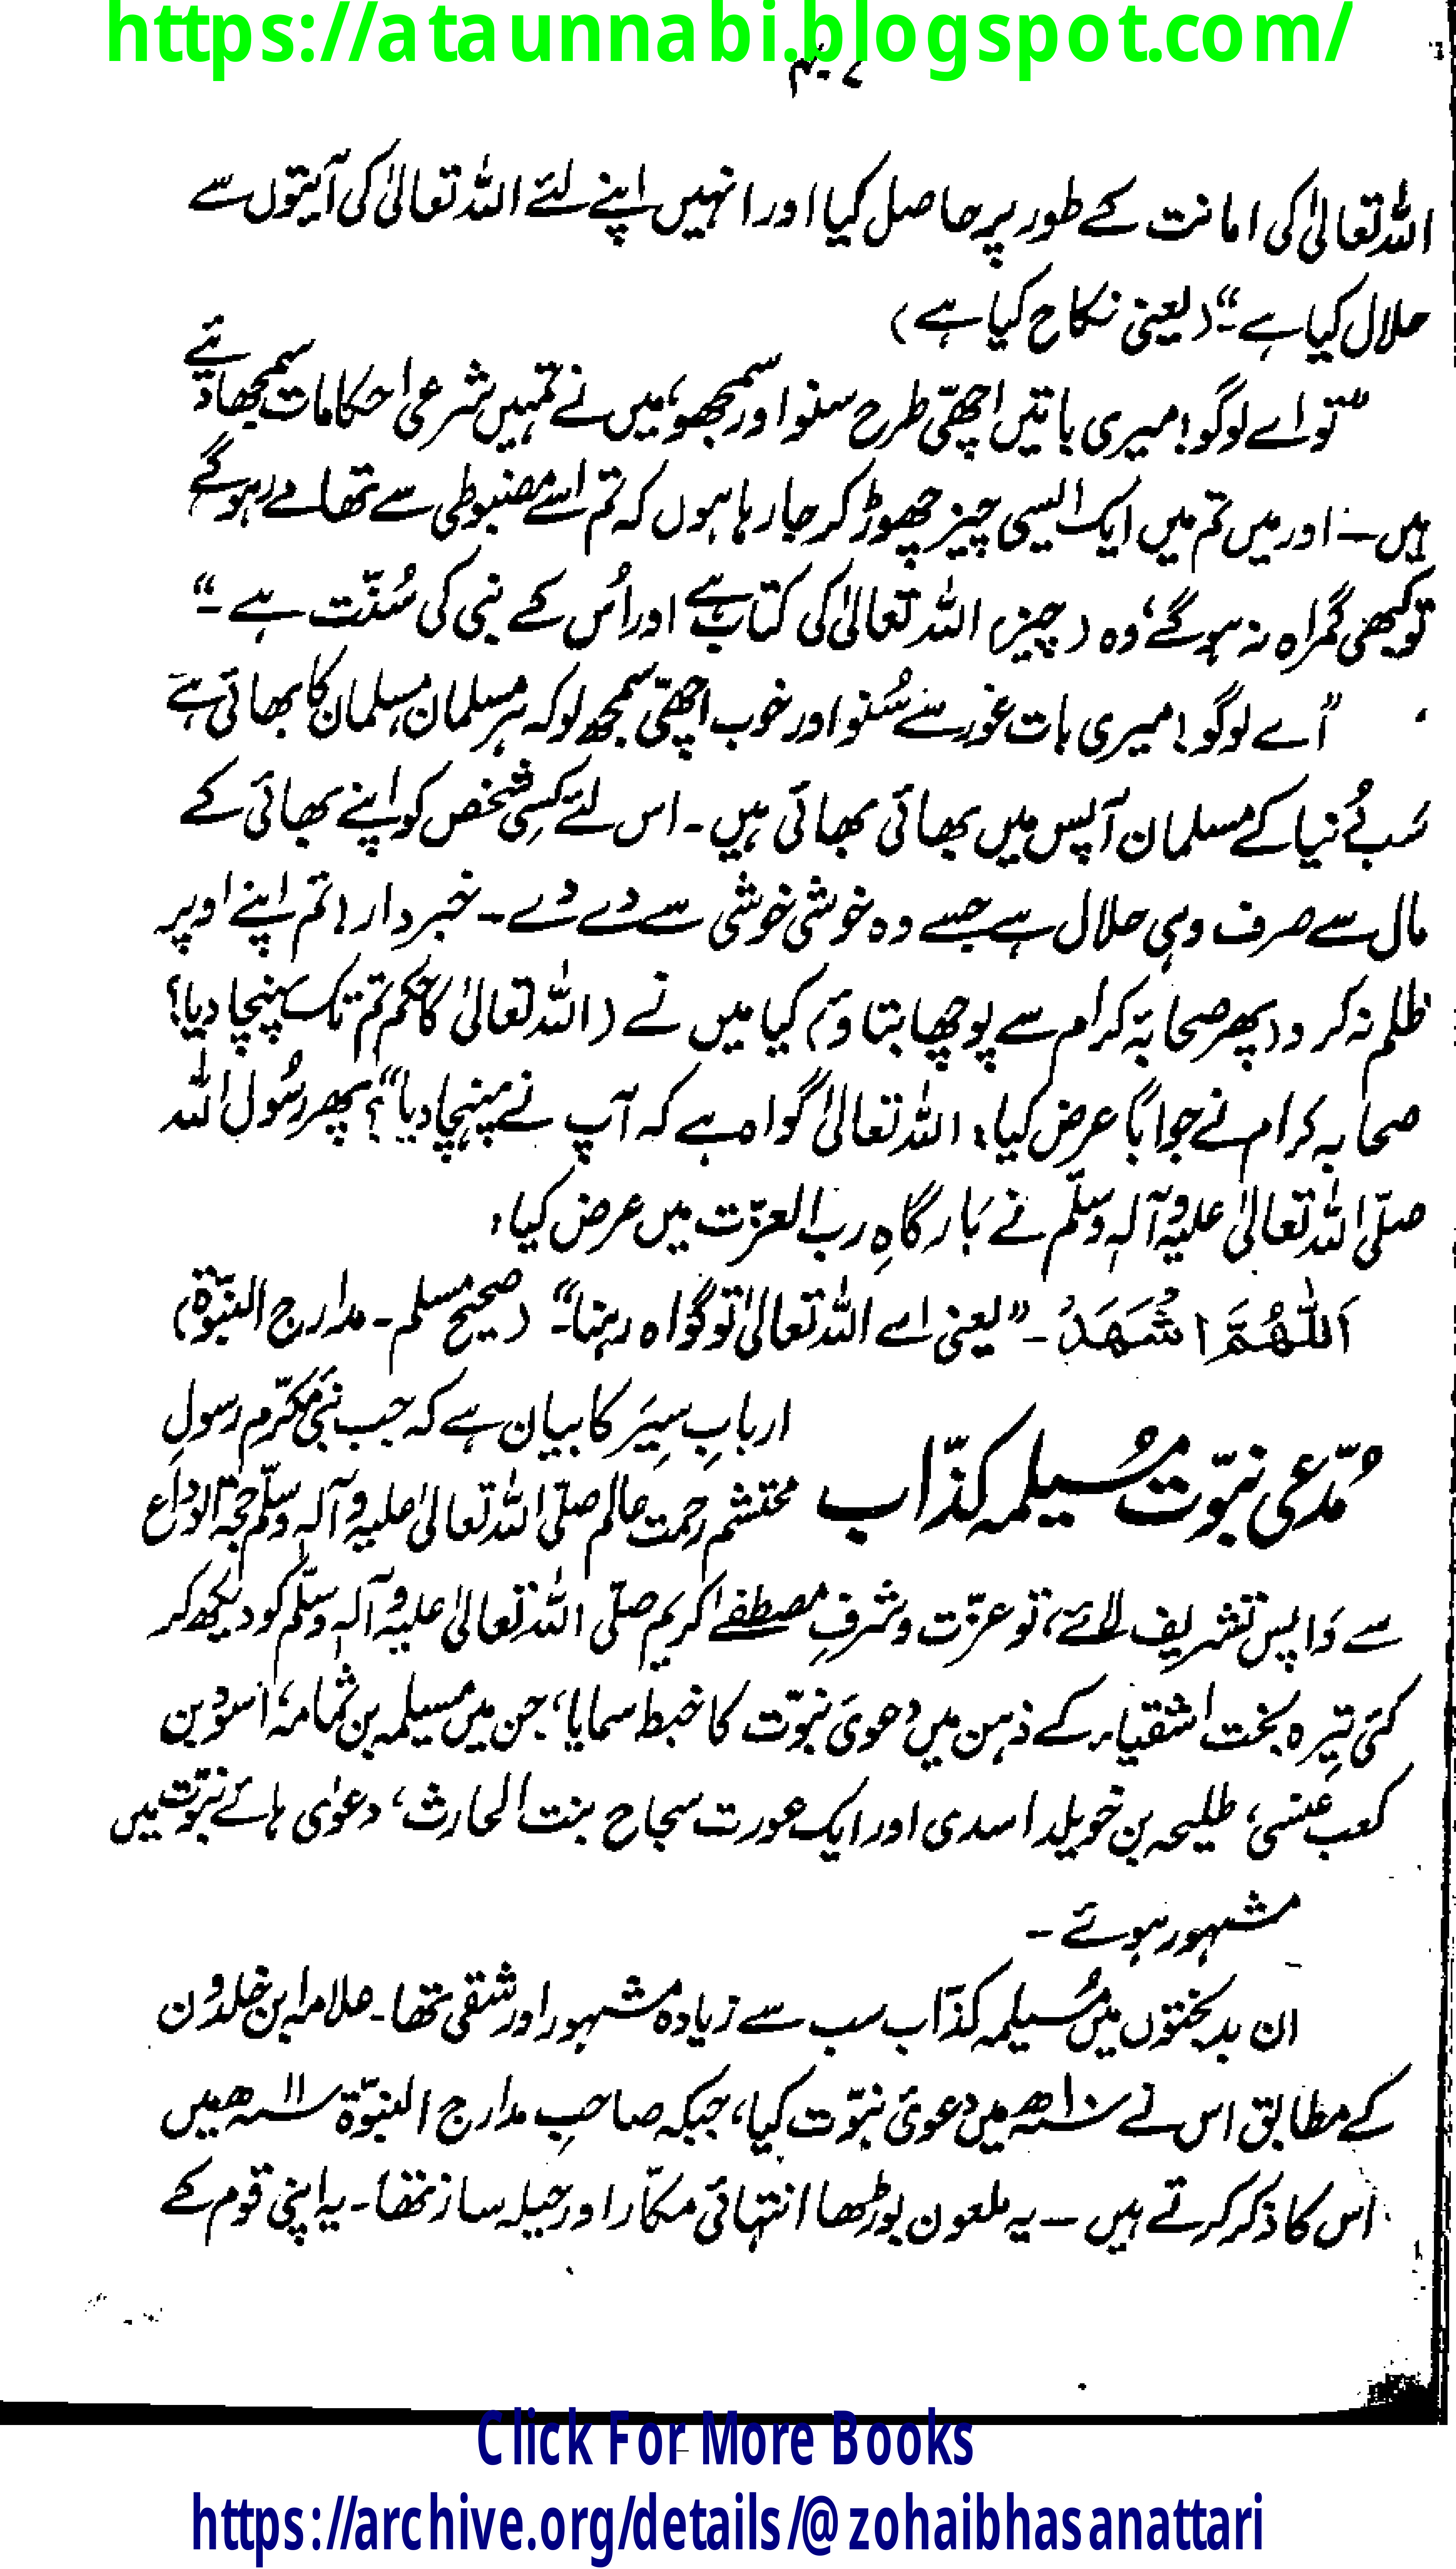 https://ataunnabi.blogspot.com/
۴۰۷
اللہ تعالیٰ کی امانت کے طور پر حاصل کیا اور انہیں اپنے لئے اللہ تعالیٰ کی آیتوں سے
حلال کیا ہے۔“ (یعنی نکاح کیا ہے)
”تو اے لوگو! میری باتیں اچھی طرح سنو اور سمجھو، میں نے تمہیں شرعی احکامات سمجھا دیئے
ہیں۔ اور میں تم میں ایک ایسی چیز چھوڑ کر جا رہا ہوں کہ تم اسے مضبوطی سے تھامے رہو گے
تو کبھی گمراہ نہ ہو گے، وہ (چیز) اللہ تعالیٰ کی کتاب ہے اور اُس کے نبی کی سُنّت ہے۔“
”اے لوگو! میری بات غور سے سُنو اور خوب اچھی سمجھ لو کہ ہر مسلمان مسلمان کا بھائی ہے
سَب دُنیا کے مسلمان آپس میں بھائی بھائی ہیں۔ اس لئے کسِی شخص کو اپنے بھائی کے
مال سے صرف وہی حلال ہے جسے وہ خوشی خوشی سے دے دے۔ خبردار! تم اپنے اوپر
ظلم نہ کرو (پھر صحابۂ کرام سے پوچھا بتاؤ) کیا میں نے (اللہ تعالیٰ کا حکم تم تک پہنچا دیا؟
صحابہ کرام نے جواباً عرض کیا: اللہ تعالیٰ گواہ ہے کہ آپ نے پہنچا دیا“؟ پھر رسُول اللہ
صلّی اللہ تعالیٰ علیہ وآلہٖ وسلّم نے بَارگاہِ رب العزّت میں عرض کیا:
اَللّٰھُمَّ اشْھَدْ۔ ”یعنی اے اللہ تعالیٰ تو گواہ رہنا۔“ (صحیح مسلم۔ مدارج النبوّۃ)
مُدّعی نبوّت مُسیلمہ کذّاب
اربابِ سِیَر کا بیان ہے کہ جب نبیٔ مکرّم رسولِ
محتشم رحمت عالم صلّی اللہ تعالیٰ علیہ وآلہٖ وسلّم حجۃ الوداع
سے وَاپس تشریف لائے، تو عزّت و شرفِ مصطفےٰ کریم صلّی اللہ تعالیٰ علیہ وآلہٖ وسلّم کو دیکھ کر
کئی تیرہ بخت اشقیاء کے ذہن میں دعویٔ نبوّت کا خبط سمایا، جن میں مسیلمہ بن ثمامہ، اسود بن
کعب عنسی، طلیحہ بن خویلد اسدی اور ایک عورت سجاح بنت الحارث، دعوٰی ہائے نبوّت میں
مشہور ہوئے۔
ان بدبختوں میں مُسیلمہ کذّاب سب سے زیادہ مشہور اور شقی تھا۔ علامہ ابن خلدون
کے مطابق اس نے ۱۰ھ میں دعویٔ نبوّت کیا، جبکہ صاحبِ مدارج النبوّۃ ۱۱ھ میں
اس کا ذکر کرتے ہیں۔ یہ ملعون بوڑھا انتہائی مکّار اور حیلہ ساز تھا۔ یہ اپنی قوم کے
Click For More Books
https://archive.org/details/@zohaibhasanattari